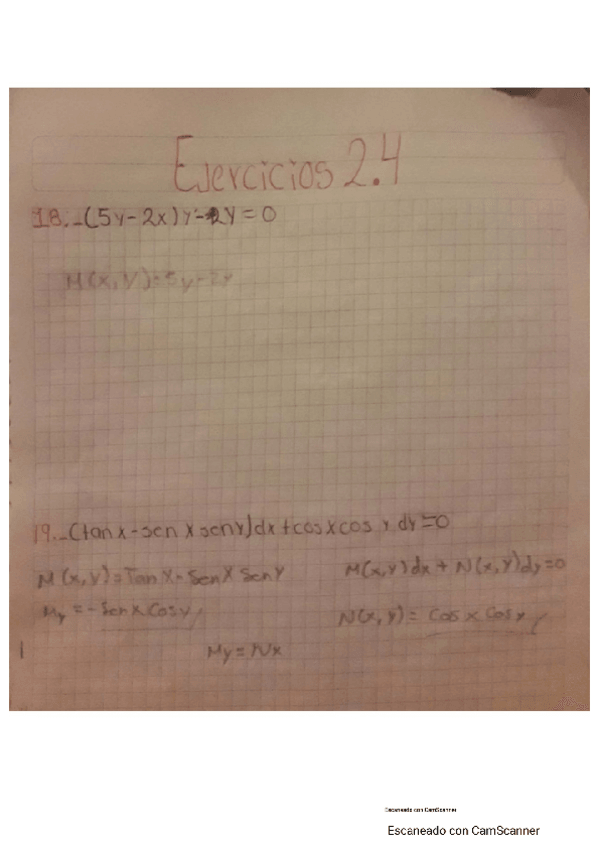 Ejercicios 2.4
18.-(5y-2x)y'-2y=0
M(x,y)=5y-2x
19.-(tan x-sen x sen y)dx+cos x cos y dy=0
M(x,y)=Tan x-Sen x Sen y
M(x,y)dx+N(x,y)dy=0
My=-Sen x Cos y
N(x,y)=Cos x Cos y
My=Nx
Escaneado con CamScanner
Escaneado con CamScanner